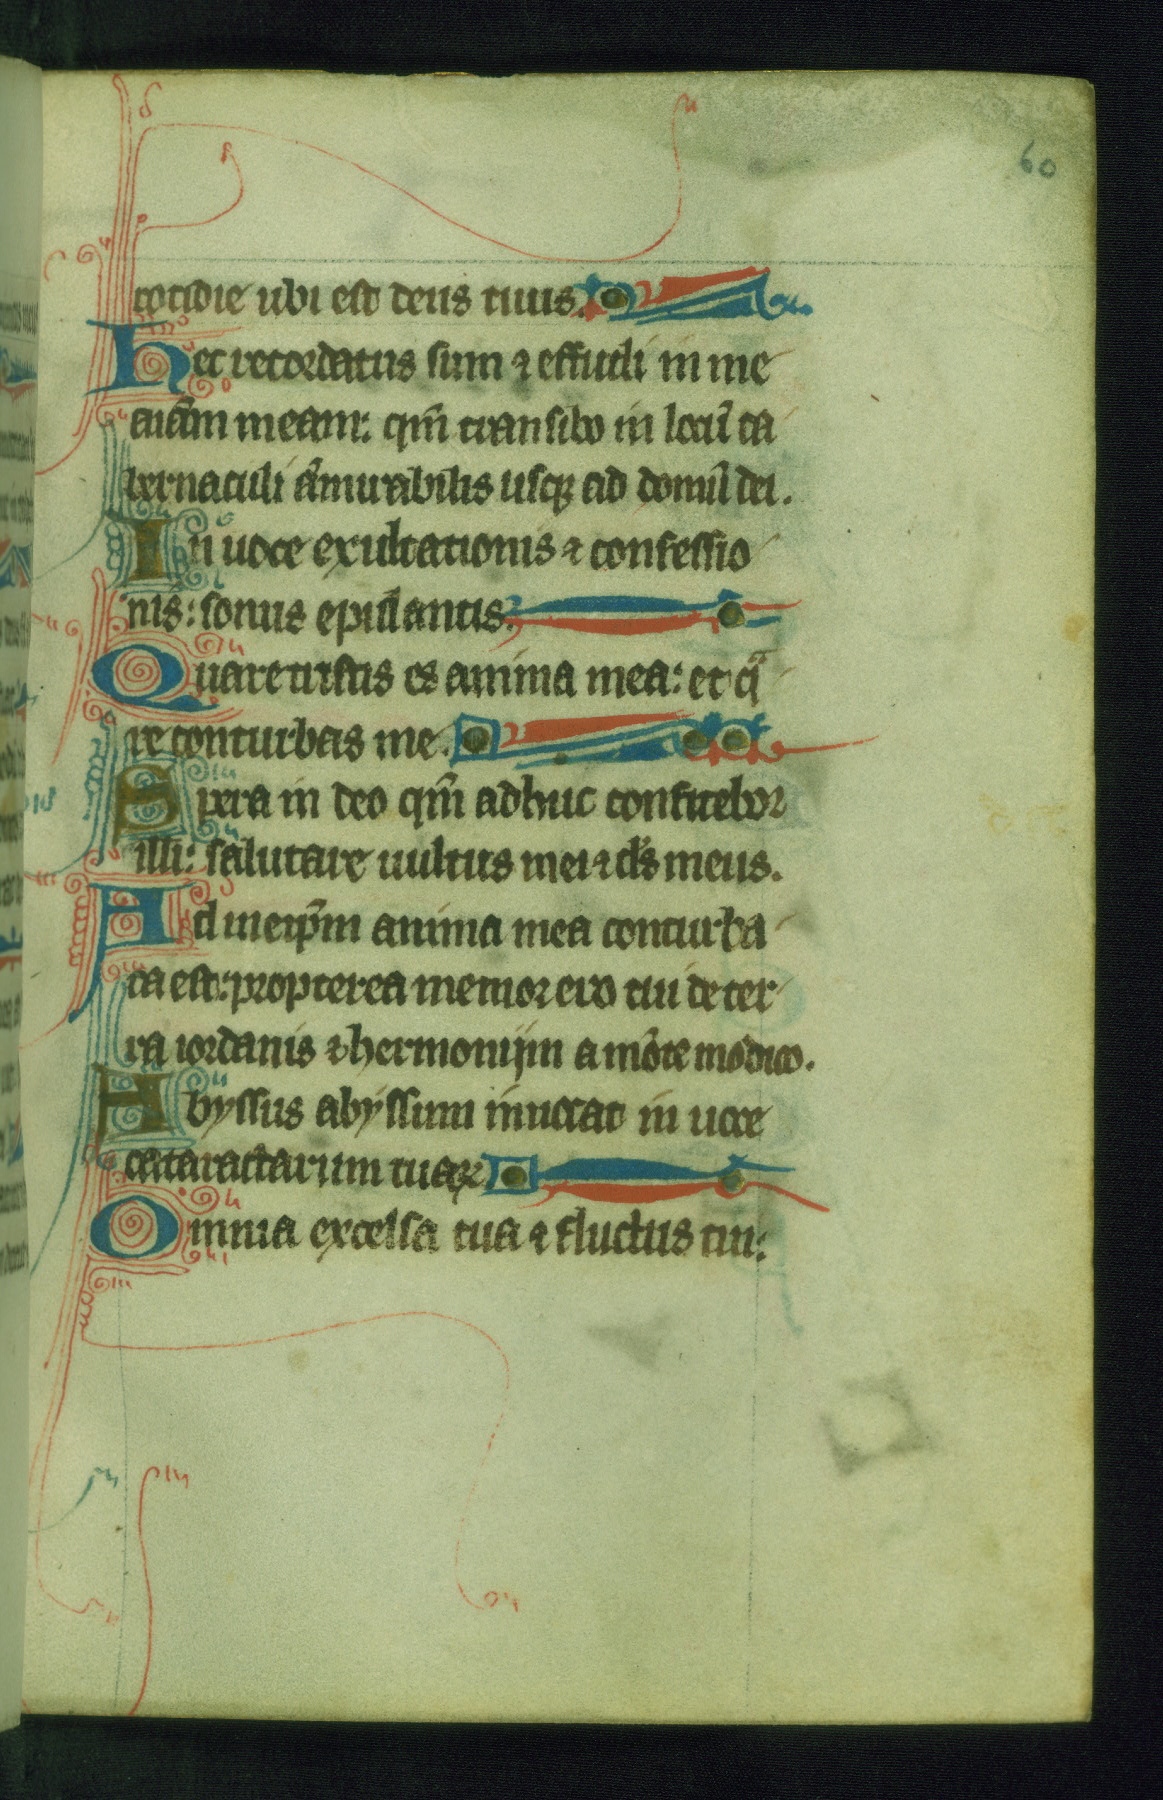 60
cotidie ubi est deus tuus.
Hec recordatus sum ⁊ effudi in me
aīam meam: qm̄ transibo in locū ta
bernaculi am̄mirabilis usq; ad domū dei.
In uoce exultationis ⁊ confessio
nis: sonus epulantis.
Quare tristis es anima mea: et qͣ
re conturbas me.
Spera in deo qm̄ adhuc confitebor
illi: salutare uultus mei ⁊ ds̄ meus.
Ad meip̄m anima mea conturba
ta est: propterea memor ero tui de ter
ra iordanis ⁊ hermonijm a mōte modico.
Abyssus abyssum inuocat in uoce
cataractarum tuaꝝ
Omnia excelsa tua ⁊ fluctus tui: